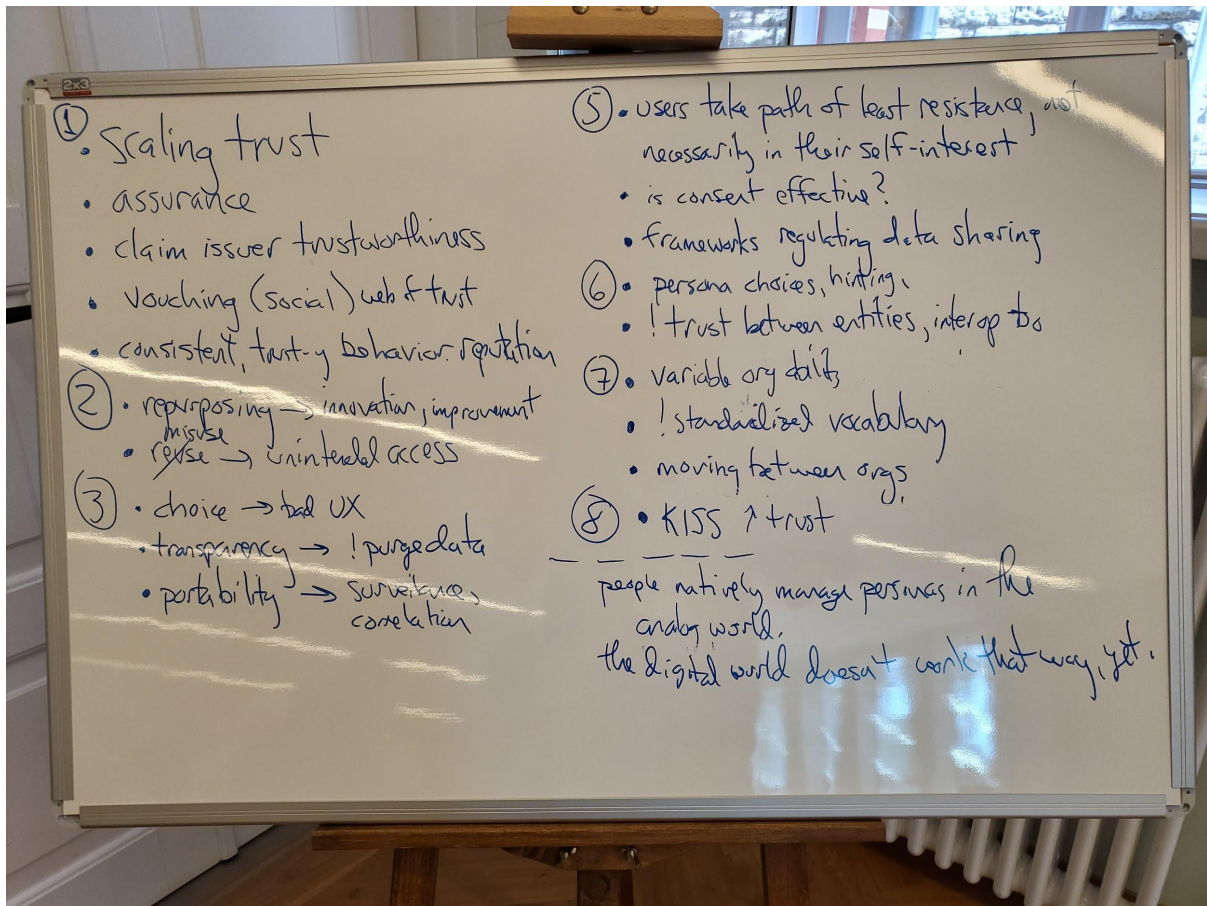 2x3
①
• Scaling trust
• assurance
• claim issuer trustworthiness
• vouching (social) web of trust
• consistent, trust-y behavior. reputation
② • repurposing → innovation, improvement
misuse
• reuse → unintended access
③ • choice → bad UX
• transparency → ! purge data
• portability → surveillance,
correlation
⑤ • users take path of least resistance, not
necessarily in their self-interest
• is consent effective?
• frameworks regulating data sharing
⑥ • persona choices, hinting,
• ! trust between entities, interop too
⑦ • variable org
• ! standardized vocabulary
• moving between orgs.
⑧ • KISS ↑ trust
people natively manage personas in the
analog world.
the digital world doesn't work that way, yet.